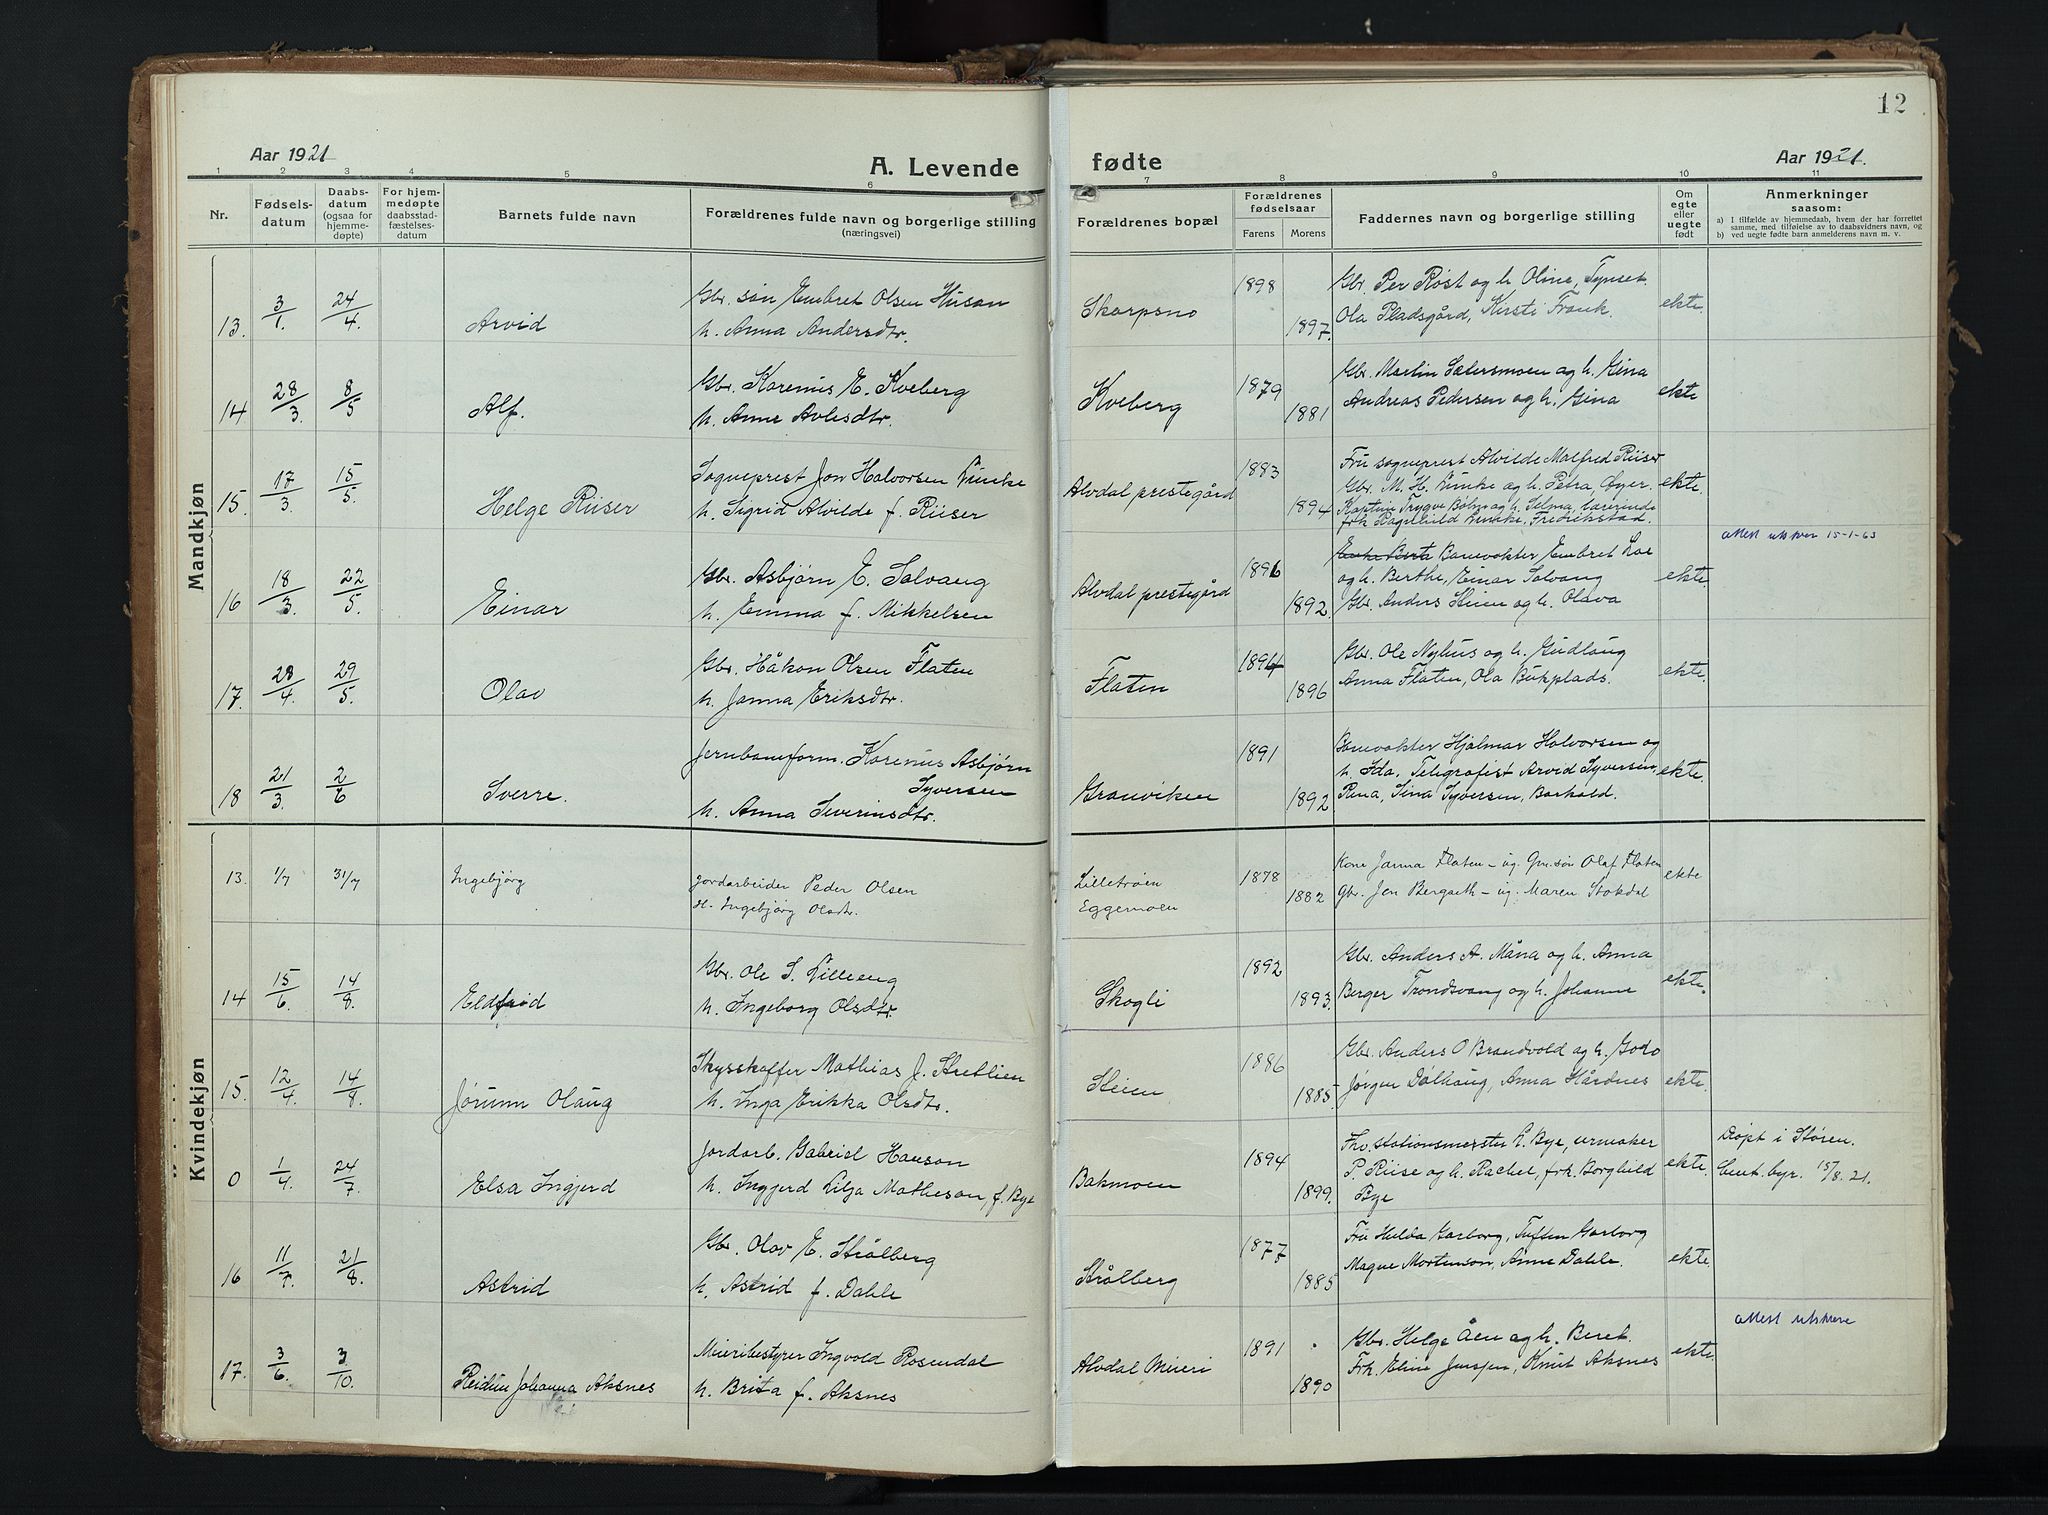 12
Aar 1921
A. Levende
fødte
Aar 1921.
1 2 3 4 5 6 7 8 9 10 11
Nr.
Fødsels-
datum
Daabs-
datum
(ogsaa for
hjemme-
døpte)
For hjem-
medøpte
daabsstad-
fæstelses-
datum
Barnets fulde navn
Forældrenes fulde navn og borgerlige stilling
(næringsvei)
Forældrenes bopæl
Forældrenes
fødselsaar
Farens Morens
Faddernes navn og borgerlige stilling
Om
egte
eller
uegte
født
Anmerkninger
saasom:
a) I tilfælde av hjemmedaab, hvem der har forrettet
samme, med tilføielse av to daabsvidners navn, og
b) ved uegte fødte barn anmelderens navn m. v.
Mandkjøn
13. 3/1. 24/4. Arvid
Gbr. søn Embret Olsen Husan
h. Anna Andersdtr.
Skarpsno
1898
1897.
Gbr. Per Røst og h. Oline, Tynset
Ola Pladsgård, Kirsti Tronk.
ekte.
14 28/3. 8/5 Alf.
Gbr. Karenius E. Kveberg
h. Anne Avlesdtr.
Kveberg
1879
1881
Gbr. Martin Sætersmoen og h. Gina
Andreas Pedersen og h. Gina
ekte
15. 17/3. 15/5. Helge Riiser
Sogneprest Jon Halvorsen Vinke
h. Sigrid Alvilde f. Riiser
Alvdal prestegård
1883
1894
Fru sogneprest Alvilde Malfred Riiser
Gbr. M. H. Vinke og h. Petra, Øyer.
Kaptein Trygve Bolm og h. Selma, lærerinde
frk Ragnhild Vinke, Fredrikstad.
ekte.
16 18/3. 22/5. Einar
Gbr. Asbjørn E. Solvang
h. Emma f. Mikkelsen
Alvdal prestegård
1896
1892.
Banevokter Embret Loe
og h. Berthe, Einar Solvang
Gbr. Anders Steien og h. Olava
ekte
attest utskrev 15-1-63
17. 28/4. 29/5. Olav
Gbr. Håkon Olsen Flaten
h. Janna Eriksdtr.
Flaten
1894
1896
Gbr. Ole Nyhus og h. Gudlaug
Anna Flaten, Ola Bukplads.
ekte.
18 21/3. 2/6 Sverre.
Jernbaneform. Karenius Asbjørn
Syversen
h. Anna Severinsdtr.
Granviken
1891
1892
Banevokter Hjalmar Halvorsen og
h. Ida, Telegrafist Arvid Syversen,
Rena, Sina Syversen, Barkald.
ekte.
Kvindekjøn
13. 1/7 31/7 Ingebjørg
Jordarbeider Peder Olsen
H. Ingebjørg Olsdtr.
Lilletrøen
Eggemoen
1878
1882
Kone Janna Flaten – ug. Gm. søn Olaf Flaten
Gbr. Jon Bergseth – ug. Maren Stokdal
ekte
14 15/6. 14/8. Eldfrid
Gbr. Ole S. Lilleeng
h. Ingeborg Olsdtr.
Skogli
1892
1893.
Gbr. Anders A. Måna og h. Anna
Berger Trondsvang og h. Johanne
ekte.
15. 12/4. 14/8. Jørunn Olaug
Skysskaffer Mathias J. Strtlien
h. Inga Erikka Olsdtr.
Steien
1886
1885.
Gbr. Anders O Brandvold og h. Godo
Jørgen Dølhaug, Anna Hårdnes
ekte.
0 1/4. 24/7. Elsa Ingjerd
Jordarb. Gabriel Hanson
h. Ingjerd Lilja Matheson, f. Bye
Bakmoen
1894
1899.
Fhv. stationsmester L. Bye, urmaker
P. Riise og h. Rachel, frk. Borghild
Bye
ekte.
Døpt i Støren.
Ment. byr. 15/8. 21.
16 11/7. 21/8. Astrid
Gbr. Olav E. Strålberg
h. Astrid f. Dahle
Strålberg
1877
1885
Fru Hulda Garborg, Tuften Garborg
Magne Mortenson, Anne Dahle.
ekte.
17. 3/6. 3/10. Reidun Johanna Aksnes
Meieribestyrer Ingvald Rosendal
h. Brita f. Aksnes
Alvdal Meieri
1891
1890
Gbr. Helge Åen og h. Beret.
Frk. Eline Jensen, Knut Aksnes
ekte.
attest utskreve